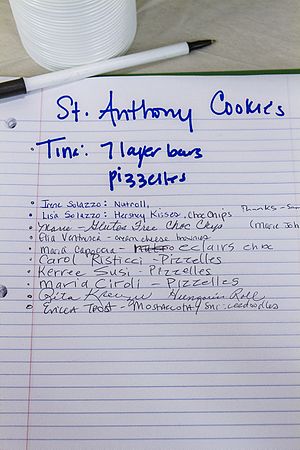 St. Anthony Cookies
• Tina: 7 layer bars
pizzelles
• Irene Solazzo: Nutroll,
• Lisa Solazzo: Hershey Kisses, Choc Chips Thanks -
• Marie - Gluten Free Choc Chips (Marie
• Elia Ventresca - cream cheese brownies
• Maria Capoccia - eclairs choc
• Carol Risticci - Pizzelles
• Kerree Susi - Pizzelles
• Maria Ciroli - Pizzelles
• Rita Hungarian Roll
• Ericca Trost - Mostaccota / Snickerdoodles